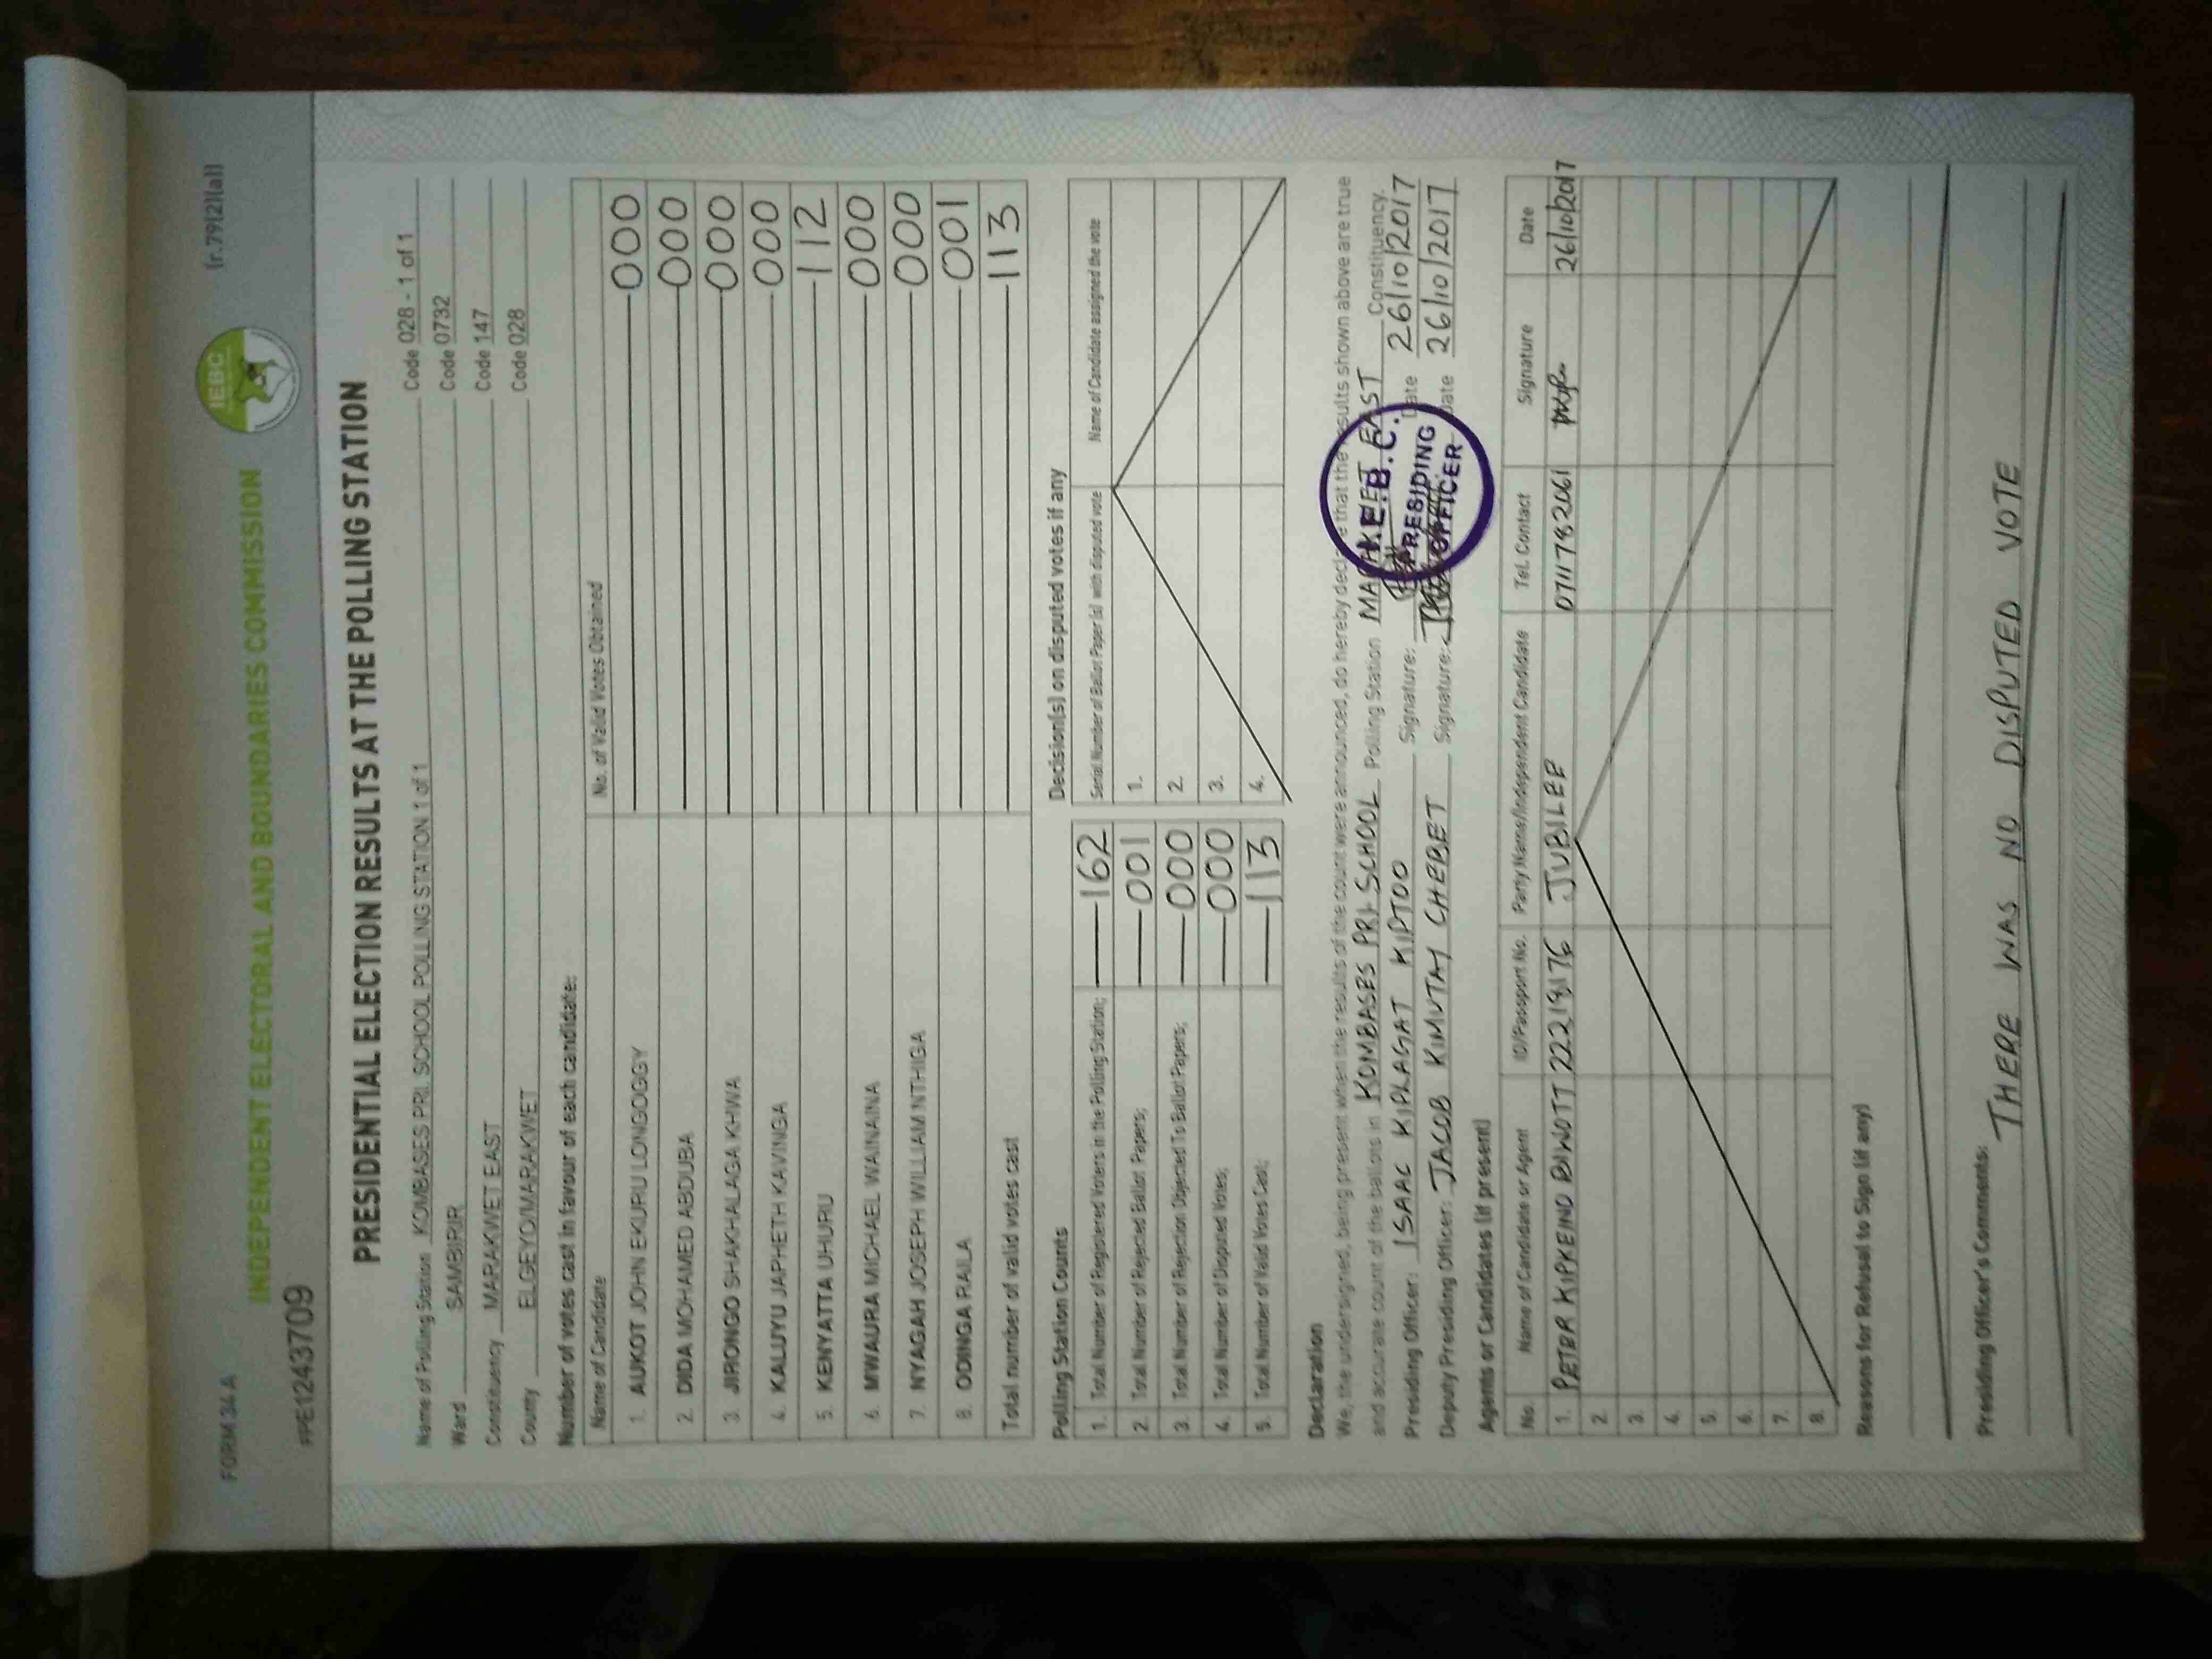 FORM 34 A
(r.79(2)(a))
INDEPENDENT ELECTORAL AND BOUNDARIES COMMISSION
IEBC
FPE1243709
PRESIDENTIAL ELECTION RESULTS AT THE POLLING STATION
Name of Polling Station KOMBASES PRI. SCHOOL POLLING STATION 1 of 1 Code 028 - 1 of 1
Ward SAMBIRIR Code 0732
Constituency MARAKWET EAST Code 147
County ELGEYO/MARAKWET Code 028
Number of votes cast in favour of each candidate:
Name of Candidate No. of Valid Votes Obtained
1. AUKOT JOHN EKURU LONGOGGY 000
2. DIDA MOHAMED ABDUBA 000
3. JIRONGO SHAKHALAGA KHWA 000
4. KALUYU JAPHETH KAVINGA 000
5. KENYATTA UHURU 112
6. MWAURA MICHAEL WAINAINA 000
7. NYAGAH JOSEPH WILLIAM NTHIGA 000
8. ODINGA RAILA 001
Total number of valid votes cast 113
Polling Station Counts
1. Total Number of Registered Voters in the Polling Station; 162
2. Total Number of Rejected Ballot Papers; 001
3. Total Number of Rejection Objected To Ballot Papers; 000
4. Total Number of Disputed Votes; 000
5. Total Number of Valid Votes Cast; 113
Decision(s) on disputed votes if any
Serial Number of Ballot Paper (s) with disputed vote Name of Candidate assigned the vote
1.
2.
3.
4.
Declaration
We, the undersigned, being present when the results of the count were announced, do hereby declare that the results shown above are true
and accurate count of the ballots in KOMBASES PRI SCHOOL Polling Station MARAKWET EAST Constituency.
Presiding Officer: ISAAC KIPLAGAT KIPTOO Signature: Date 26/10/2017
Deputy Presiding Officer: JACOB KIMUTAY CHEBET Signature: Date 26/10/2017
I.E.B.C.
PRESIDING
OFFICER
Agents or Candidates (if present)
No. Name of Candidate or Agent ID/Passport No. Party Name/Independent Candidate Tel. Contact Signature Date
1. PETER KIPKEINO BIWOTT 22219176 JUBILEE 0711782061 26/10/2017
2.
3.
4.
5.
6.
7.
8.
Reasons for Refusal to Sign (if any)
Presiding Officer's Comments:
THERE WAS NO DISPUTED VOTE